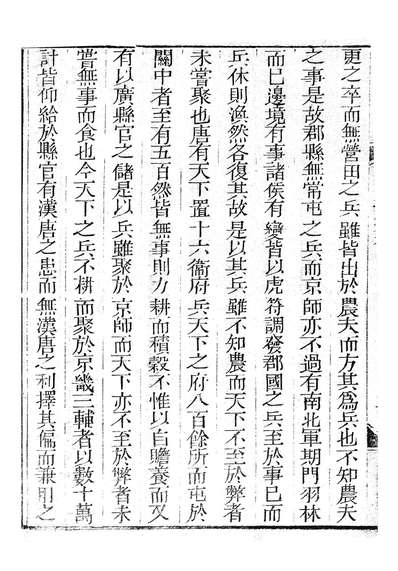 更之卒而無營田之兵雖皆出於農夫而方其爲兵也不知農夫
之事是故郡縣無常屯之兵而京師亦不過有南北軍期門羽林
而巳邊境有事諸侯有變皆以虎符調發郡國之兵至於事巳而
兵休則渙然各復其故是以其兵雖不知農而天下不至於弊者
未嘗聚也唐有天下置十六衛府兵天下之府八百餘所而屯於
關中者至有五百然皆無事則力耕而積穀不惟以自贍養而又
有以廣縣官之儲是以兵雖聚於京師而天下亦不至於弊者未
嘗無事而食也今天下之兵不耕而聚於京畿三輔者以數十萬
計皆仰給於縣官有漢唐之患而無漢唐之利擇其偏而兼用之